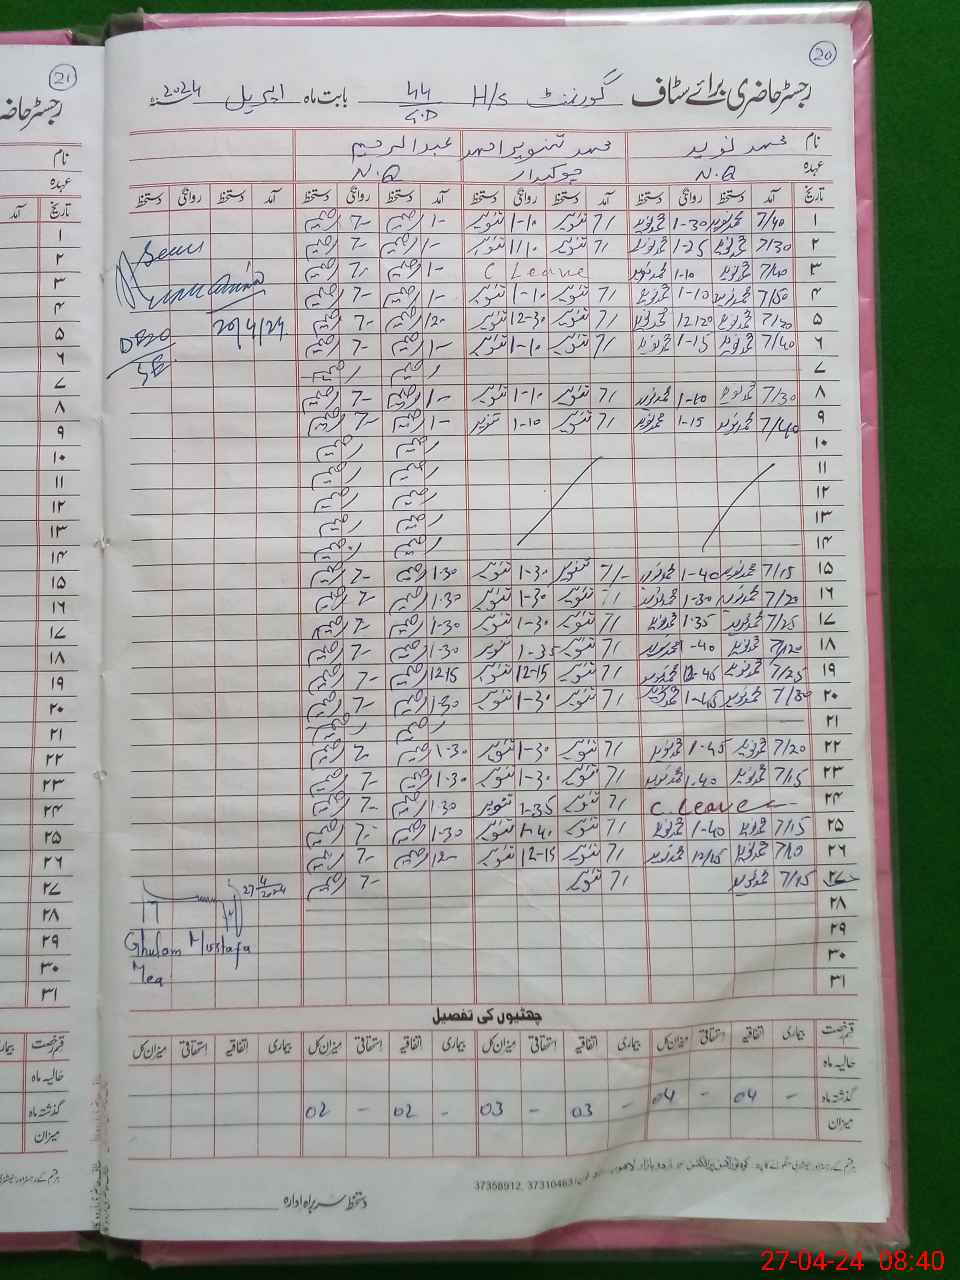 20
رجسٹر حاضری برائے سٹاف گورنمنٹ H/S 44 بابت ماہ اپریل 2024
نام محمد نوید محمد تنویر احمد عبدالرحیم
عہدہ N.Q چوکیدار N.Q
تاریخ آمد دستخط روانگی دستخط آمد دستخط روانگی دستخط آمد دستخط روانگی دستخط آمد دستخط روانگی دستخط
۱ 7/40 محمد نوید 1-30 محمد نوید 7/ تنویر 1-10 تنویر 1- رحیم 7- رحیم
۲ 7/30 محمد نوید 1-25 محمد نوید 7/ تنویر 1/10 تنویر 1- رحیم 7- رحیم
۳ محمد نوید 1-10 محمد نوید C Leave 1- رحیم 7- رحیم
۴ 7/50 محمد نوید 1-10 محمد نوید 7/ تنویر 1-10 تنویر 1- رحیم 7- رحیم
۵ 7/20 محمد نوید 12/20 محمد نوید 7/ تنویر 12-30 تنویر 12- رحیم 7- رحیم 20/4/24
۶ 7/40 محمد نوید 1-15 محمد نوید 7/ تنویر 1-10 تنویر 1- رحیم 7- رحیم
۷ رحیم رحیم
۸ 7/30 محمد نوید 1-10 محمد نوید 7/ تنویر 1-10 تنویر 1- رحیم 7- رحیم
۹ 7/40 محمد نوید 1-15 محمد نوید 7/ تنویر 1-10 تنویر 1- رحیم 7- رحیم
۱۰ رحیم رحیم
۱۱ رحیم رحیم
۱۲ رحیم رحیم
۱۳ رحیم رحیم
۱۴ رحیم رحیم
۱۵ 7/15 محمد نوید 1-40 محمد نوید 7/- تنویر 1-30 تنویر 1-30 رحیم 7- رحیم
۱۶ 7/20 محمد نوید 1-30 محمد نوید 7/ تنویر 1-30 تنویر 1-30 رحیم 7- رحیم
۱۷ 7/25 محمد نوید 1-35 محمد نوید 7/ تنویر 1-30 تنویر 1-30 رحیم 7- رحیم
۱۸ 7/20 محمد نوید 1-40 محمد نوید 7/ تنویر 1-35 تنویر 1-30 رحیم 7- رحیم
۱۹ 7/25 محمد نوید 12-45 محمد نوید 7/ تنویر 12-15 تنویر 12-15 رحیم 7- رحیم
۲۰ 7/30 محمد نوید 1-45 محمد نوید 7/ تنویر 1-30 تنویر 1-30 رحیم 7- رحیم
۲۱ رحیم رحیم
۲۲ 7/20 محمد نوید 1-45 محمد نوید 7/ تنویر 1-30 تنویر 1-30 رحیم 7 رحیم
۲۳ 7/15 محمد نوید 1-40 محمد نوید 7/ تنویر 1-30 تنویر 1-30 رحیم 7- رحیم
۲۴ C. Leave 7/ تنویر 1-35 تنویر 1-30 رحیم 7- رحیم
۲۵ 7/15 محمد نوید 1-40 محمد نوید 7/ تنویر 1-40 تنویر 1-30 رحیم 7- رحیم
۲۶ 7/10 محمد نوید 12/15 محمد نوید 7/ تنویر 12-15 تنویر 12- رحیم 7- رحیم
۲۷ 7/15 محمد نوید 7/ تنویر 7- رحیم 27 4/2024
۲۸
۲۹ Ghulam Mustafa
۳۰ Mea
۳۱
چھٹیوں کی تفصیل
قسم رخصت بیماری اتفاقیہ استحقاقی میزان کل بیماری اتفاقیہ استحقاقی میزان کل بیماری اتفاقیہ استحقاقی میزان کل بیماری اتفاقیہ استحقاقی میزان کل
حالیہ ماہ
گذشتہ ماہ - 04 - 04 - 03 - 03 - 02 - 02
میزان
37358912, 37310463
دستخط سربراہ ادارہ
21
رجسٹر حاضری
نام
عہدہ
تاریخ آمد
۱
۲
۳
۴
۵
۶
۷
۸
۹
۱۰
۱۱
۱۲
۱۳
۱۴
۱۵
۱۶
۱۷
۱۸
۱۹
۲۰
۲۱
۲۲
۲۳
۲۴
۲۵
۲۶
۲۷
۲۸
۲۹
۳۰
۳۱
قسم رخصت بیماری
حالیہ ماہ
گذشتہ ماہ
میزان
27-04-24 08:40